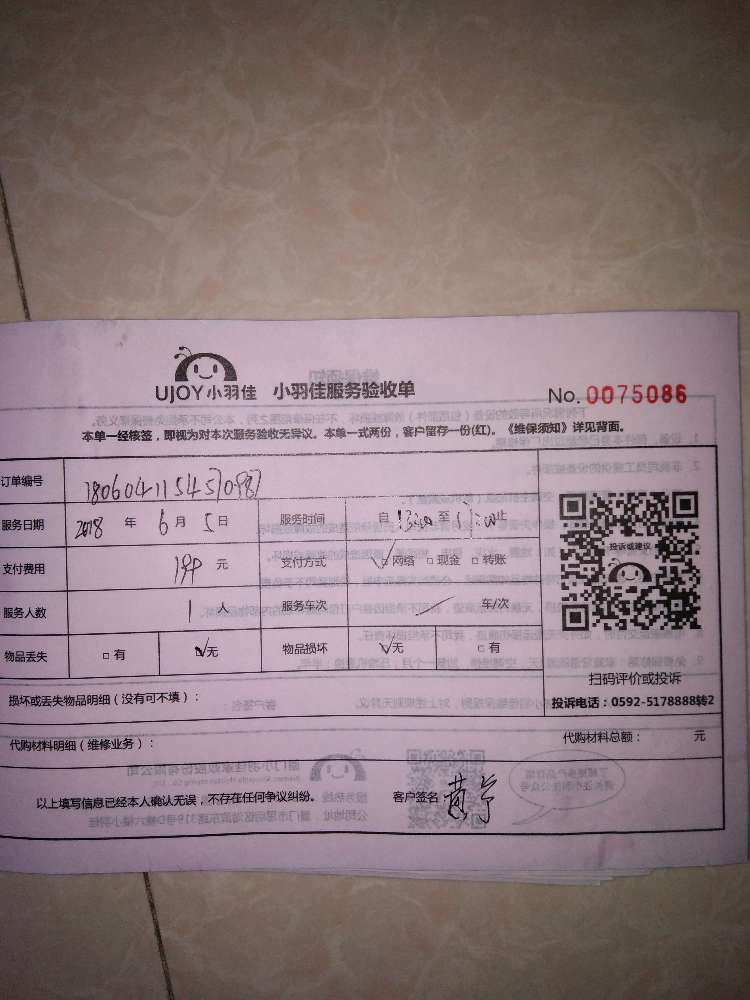 UJOY小羽佳 小羽佳服务验收单
No. 0075086
本单一经核签，即视为对本次服务验收无异议。本单一式两份，客户留存一份(红)。《维保须知》详见背面。
订单编号
服务日期 2018 年 6 月 5 日 服务时间 自 至 止
支付费用 元 支付方式 网络 □ 现金 □ 转账
服务人数 1 人 服务车次 车/次
物品丢失 □ 有 无 物品损坏 无 □ 有
投诉或建议
扫码评价或投诉
投诉电话：0592-5178888转2
损坏或丢失物品明细（没有可不填）：
代购材料明细（维修业务）： 代购材料总额： 元
以上填写信息已经本人确认无误，不存在任何争议纠纷。 客户签名